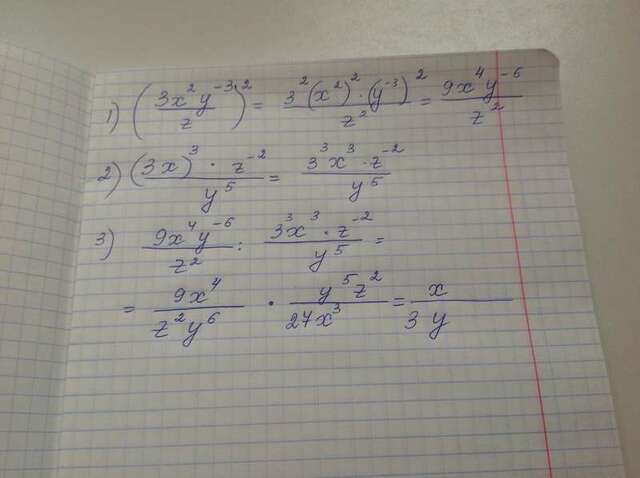 1) (3x²y⁻³/z)² = 3²(x²)²·(y⁻³)²/z² = 9x⁴y⁻⁶/z²
2) (3x)³·z⁻²/y⁵ = 3³x³·z⁻²/y⁵
3) 9x⁴y⁻⁶/z² : 3³x³·z⁻²/y⁵ =
= 9x⁴/z²y⁶ · y⁵z²/27x³ = x/3y